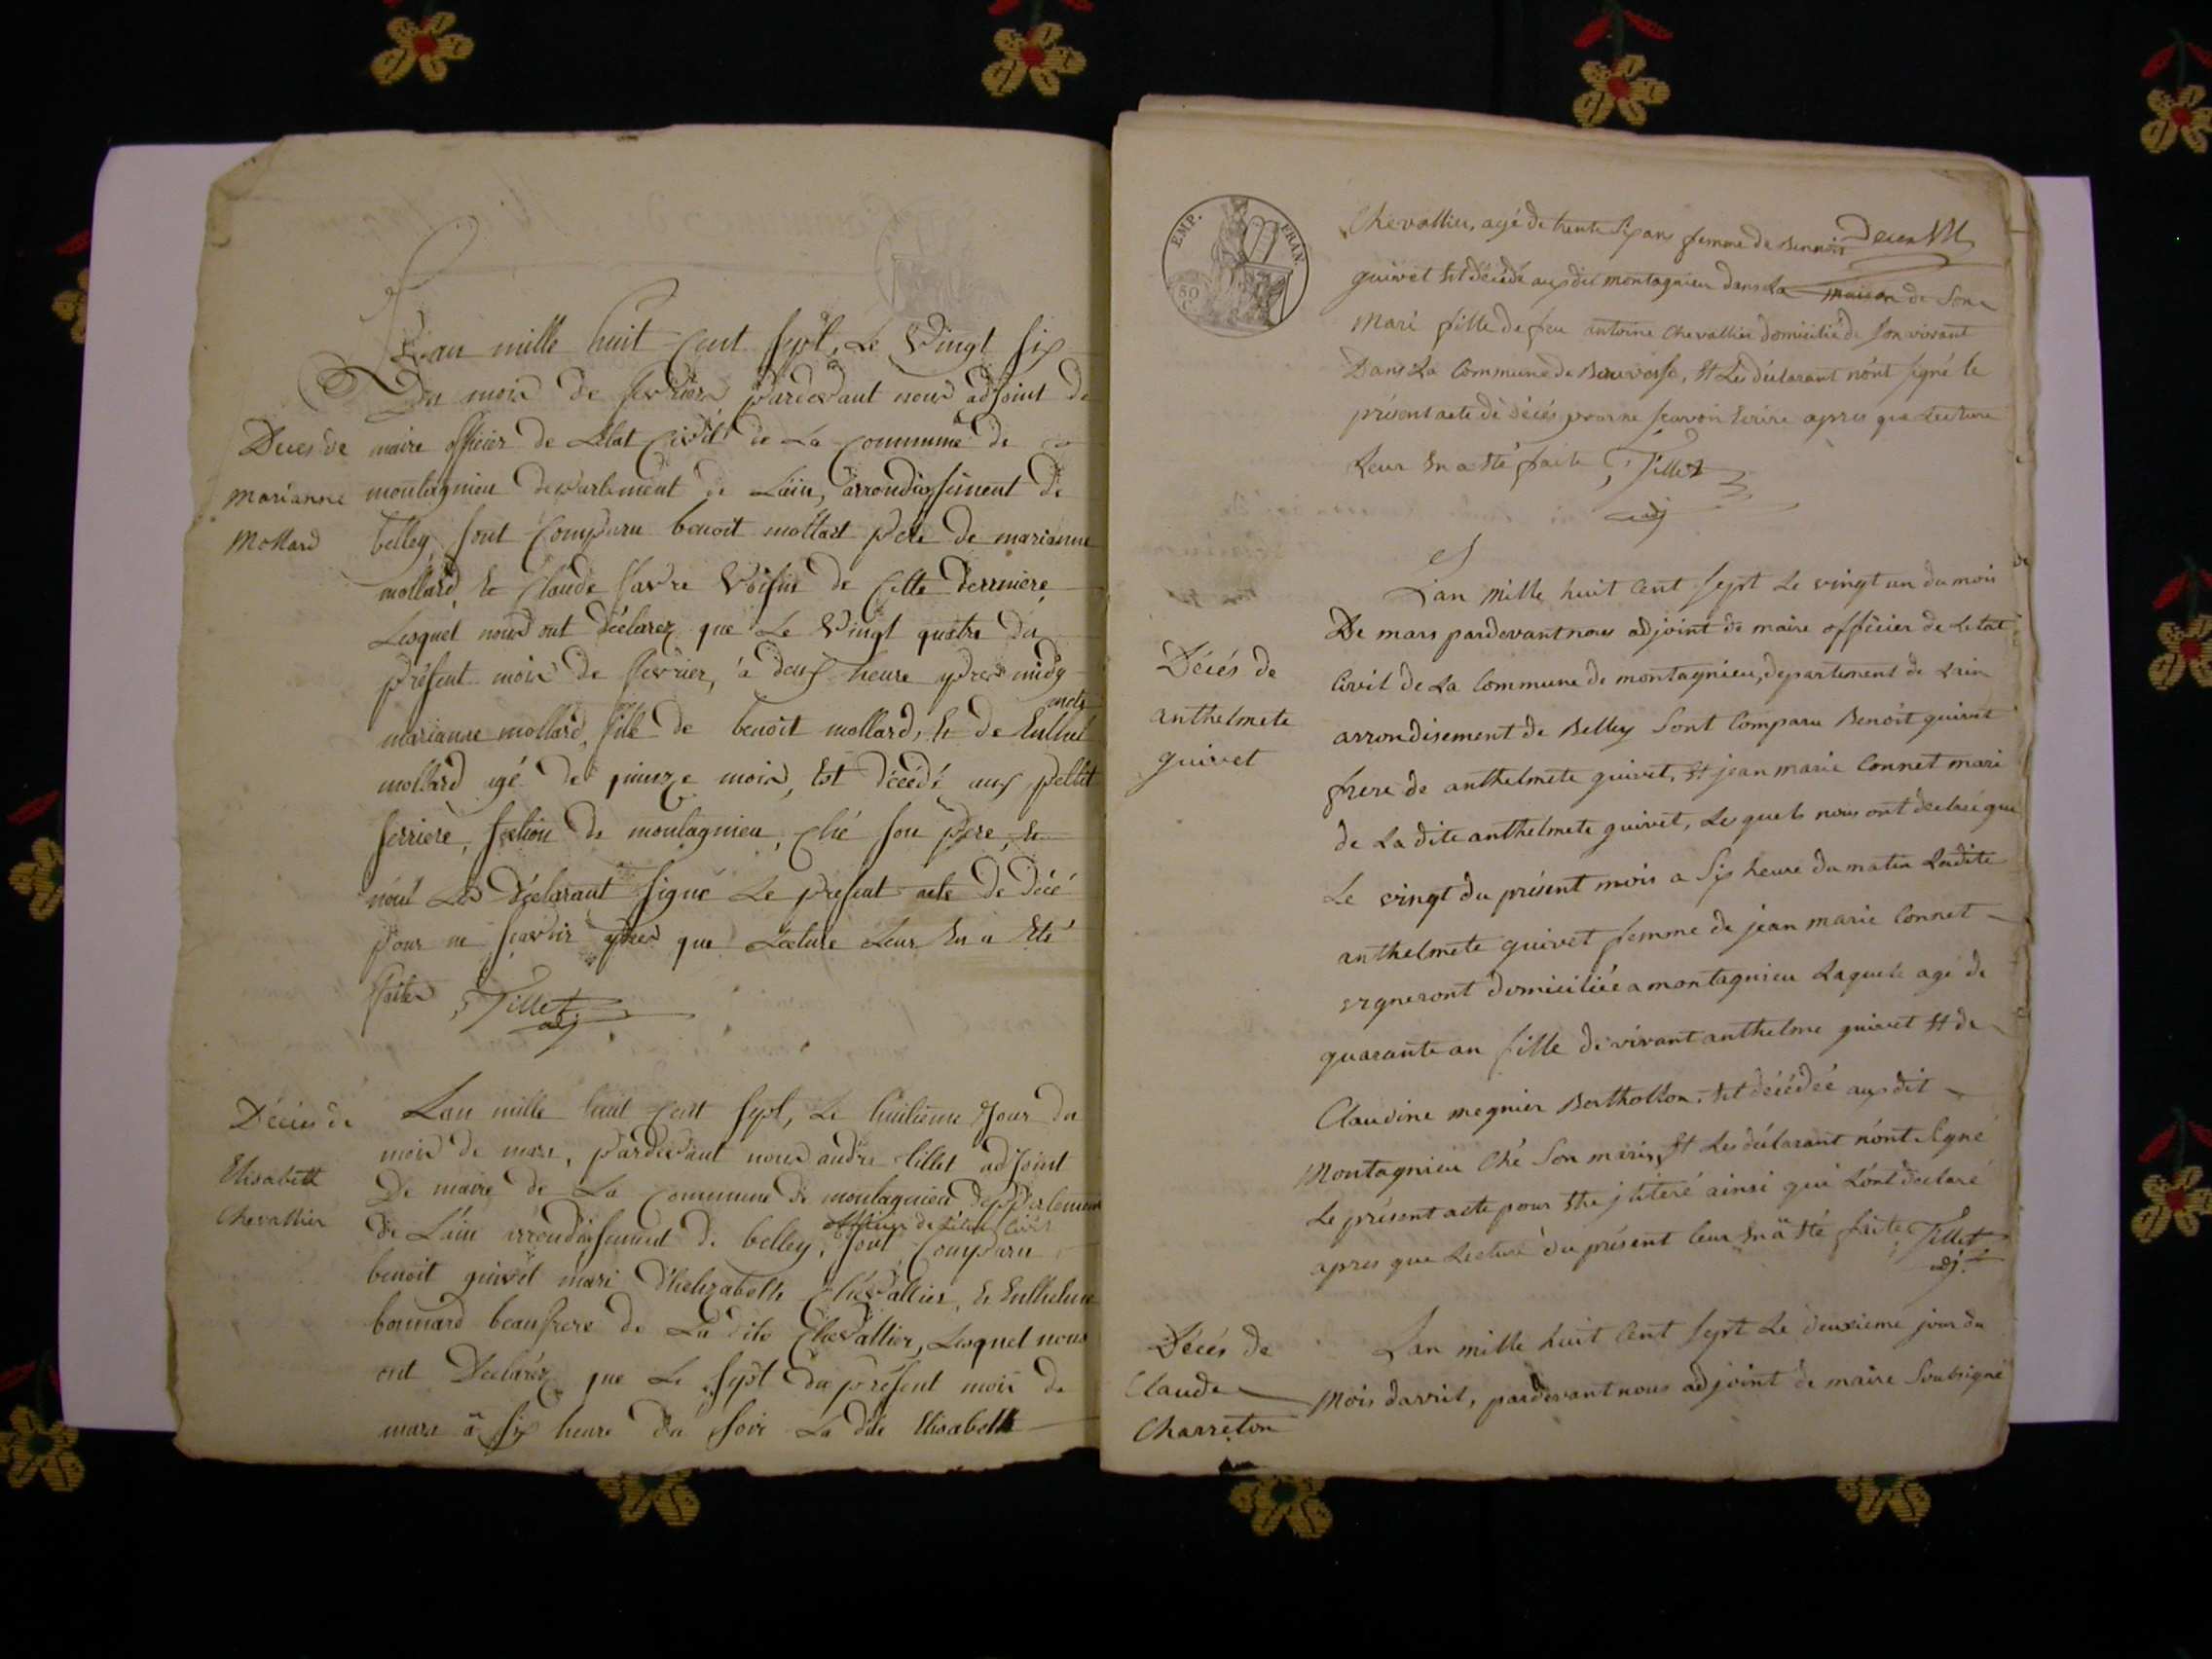 L'an mille huit cent sept, Le Vingt six
Du mois de fevrier pardevant nous adjoint de
Deces de
marianne
Mollard
maire officier de Létat Civil de La Commune de
montagnieu departement de Lain, arrondissement de
belley, sont Comparu benoit mollard pere de marianne
mollard, et Claude favre Voisin de Cette derniere,
Lesquel nous ont déclarez que Le Vingt quatre du
présent mois de fevrier, à deux heure apres midy
marianne mollard, fille de benoit mollard, et de Enthelmete
mollard agé de quinze mois, Est décédé aux pettit
ferriere, section de montagnieu, ché son pere, et
nont Les Déclarant signé Le présent acte de décé
pour ne scavoir apres que Lecture Leur En a Eté
faite, Tillet
adj
Décés de
Elisabett
Chevallier
Lan mille huit cent sept, Le huitieme Jour du
mois de mars, pardevant nous andre tillet adjoint
De maire de La Commune de montagnieu departement
officier de Létat Civil
de L'ain arrondissement de belley, sont Comparu
benoit guivet mari d'helizabeth Chevallier, et Enthelme
bonnard beaufrere de La dite Chevallier, Lesquel nous
ont Declarez que Le sept du présent mois de
mars à six heure du soir La dite Elisabett
EMP. FRAN.
50
C.
Chevallier, agé de trente six ans femme de Bennoit
guivet Est décédé aux dit montagnieu dans La maison de Son
Mari fille de feu antoine Chevallier domicilié de Son vivant
Dans La Commune de Bouvesse, Et Les déclarant n'ont signé le
présent acte de décés pour ne scavoir Ecrire apres que Lecture
Leur En a Eté faite, Tillet
adj
Décés de
anthelmete
guivet
Lan mille huit Cent sept Le vingt un du mois
De mars pardevant nous adjoint de maire officier de Letat
Civil de La Commune de montagnieu, departement de Lain
arrondisement de Belley Sont Comparu Benoit guivet
frere de anthelmete guivet, Et jean marie Connet mari
de La dite anthelmete guivet, Les quels nous ont declaré que
Le vingt du présent mois a Six heure du matin Ladite
anthelmete guivet femme de jean marie Connet
domiciliée a montagnieu Laquele agé de
quarante an fille de vivant anthelme guivet Et de
Claudine megnier Berthollon, Est décédée aux dit
Montagnieu Ché Son mari, Et Les déclarant n'ont Signé
Le présent acte pour Etre jliteré ainsi qui L'ont declaré
apres que Lecture du présent leur En a Eté faite, Tillet
adj.
Décés de
Claude
Charreton
Lan mille huit Cent sept Le deuxieme jour du
Mois davril, pardevant nous adjoint de maire Soubsigné